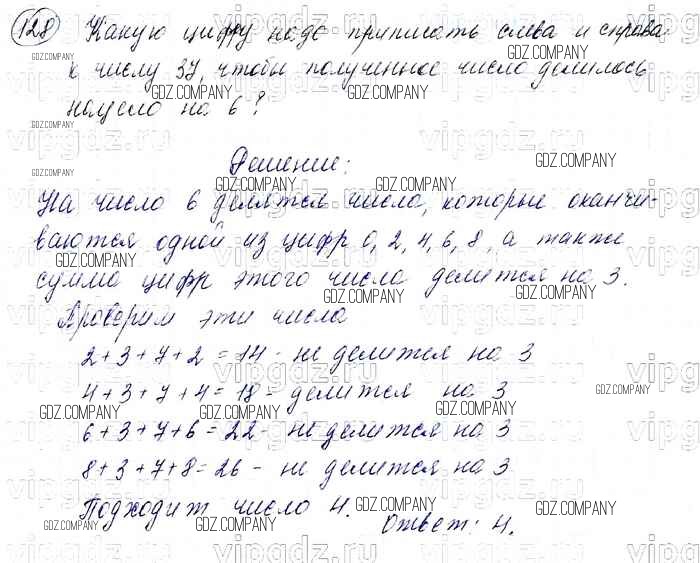 128 Какую цифру надо приписать слева и справа
к числу 37, чтобы полученное число делилось
нацело на 6?
Решение:
На число 6 делятся числа, которые оканчи-
ваются одной из цифр 0, 2, 4, 6, 8, а также
сумма цифр этого числа делится на 3.
Проверим эти числа
2+3+7+2=14 - не делится на 3
4+3+7+4=18 - делится на 3
6+3+7+6=22 - не делится на 3
8+3+7+8=26 - не делится на 3
Подходит число 4.
Ответ: 4.
GDZ.COMPANY
vipgdz.ru